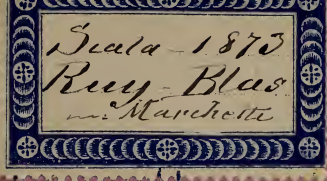 Scala - 1873
Ruy - Blas
Marchetti